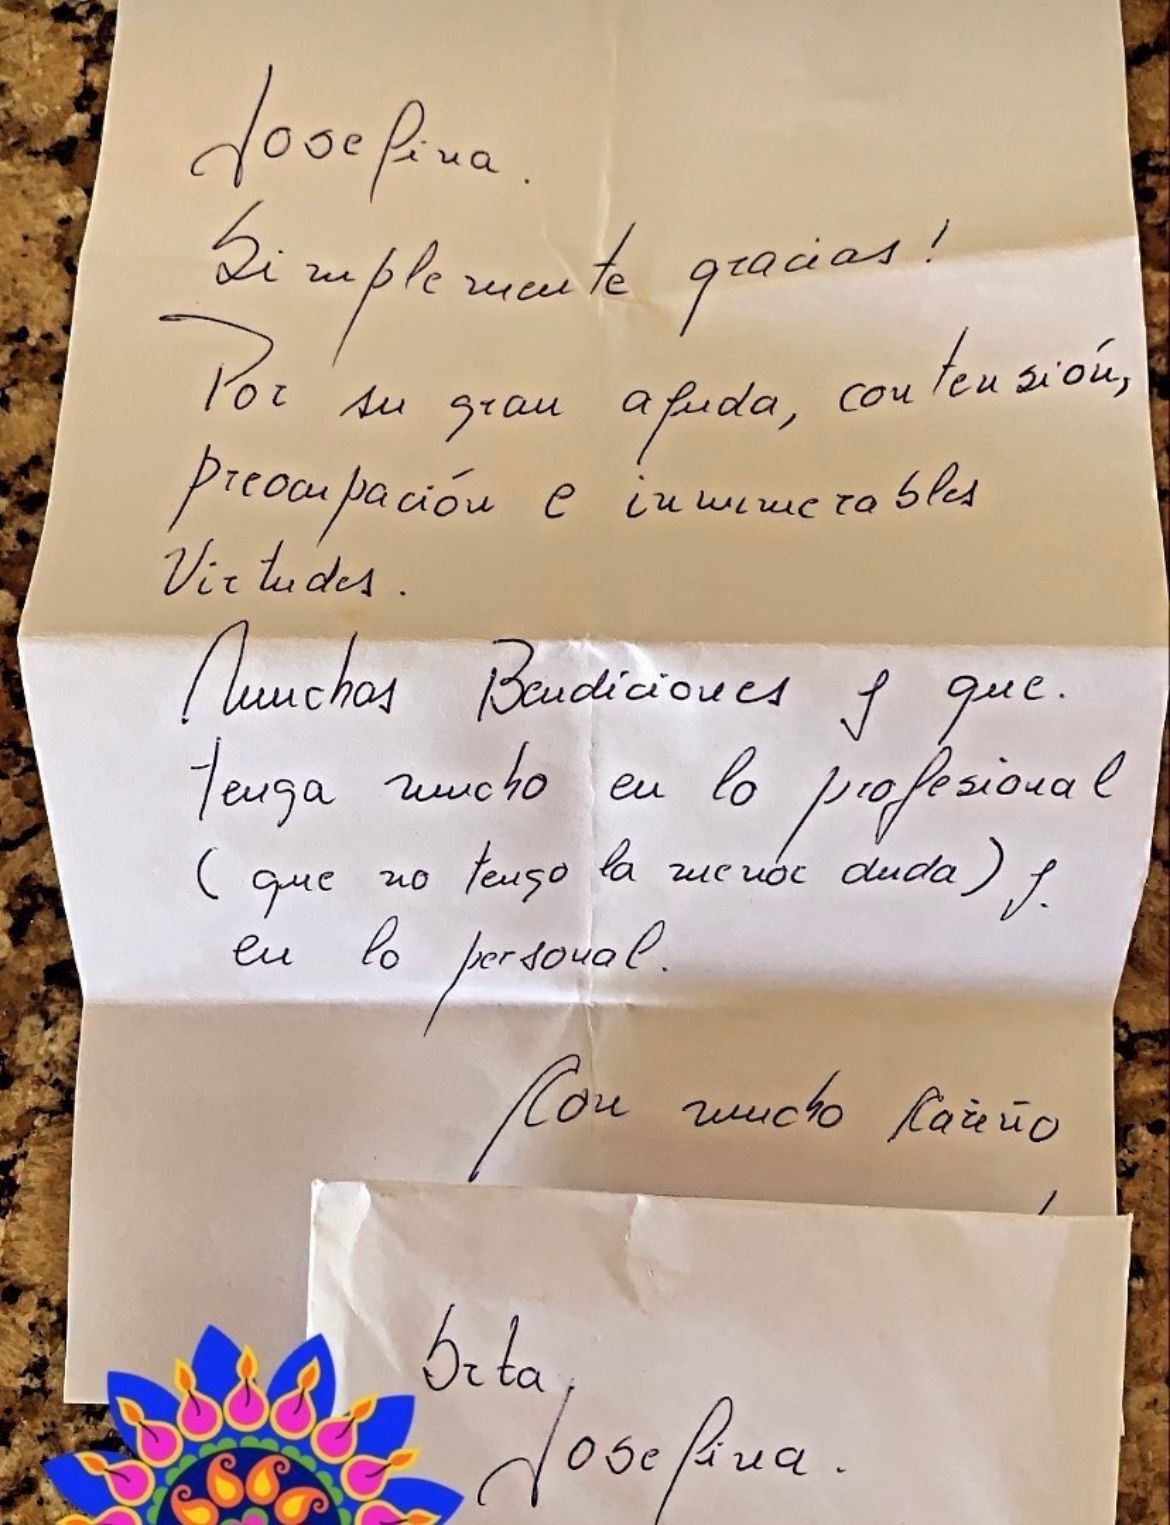 Josefina.
Simplemente gracias!
Por su gran ayuda, contensión,
preocupación e innumerables
Virtudes.
Muuchas Bendiciones y que.
tenga mucho en lo profesional
(que no tengo la menor duda) y.
en lo personal.
Con mucho Cariño
Srta.
Josefina.